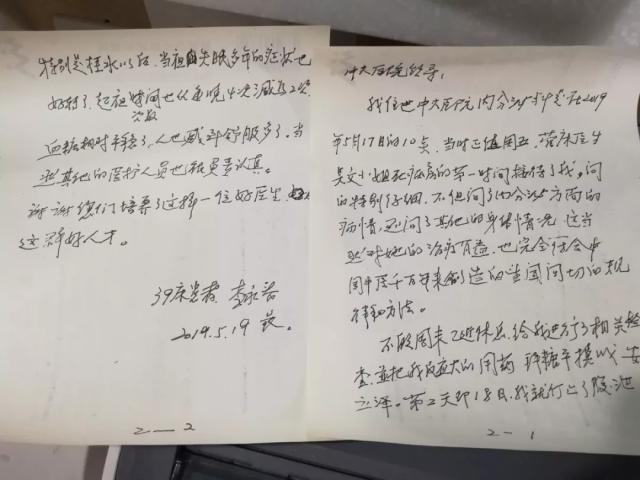 中大医院领导：
我住进中大医院内分泌科是在2019
年5月17日的10点，当时正值周五，管床医生
吴文小姐在病房的第一时间接待了我，问
的特别仔细，不但问了内分泌方面的
病情，还问了其他的身体情况，这当
然对她的治疗有益，也完全符合中
国中医千百年来创造的望闻问切的规
律和方法。
不顾周末已近休息，给我进行了相关检
查，并把我反应大的用药 拜糖平换成安
立泽。第2天即18日，我就打上了胰
2-1
特别是挂水以后，当祖失眠多年的症状也
好转了，起夜时间也从每晚4次减为2次，
次数
血糖相对平稳了，人也感到舒服多了。当
然其他的医护人员也很负责认真。
谢谢您们培养了这样一位好医生，
这群好人才。
39床患者 李
2019.5.19
2-2